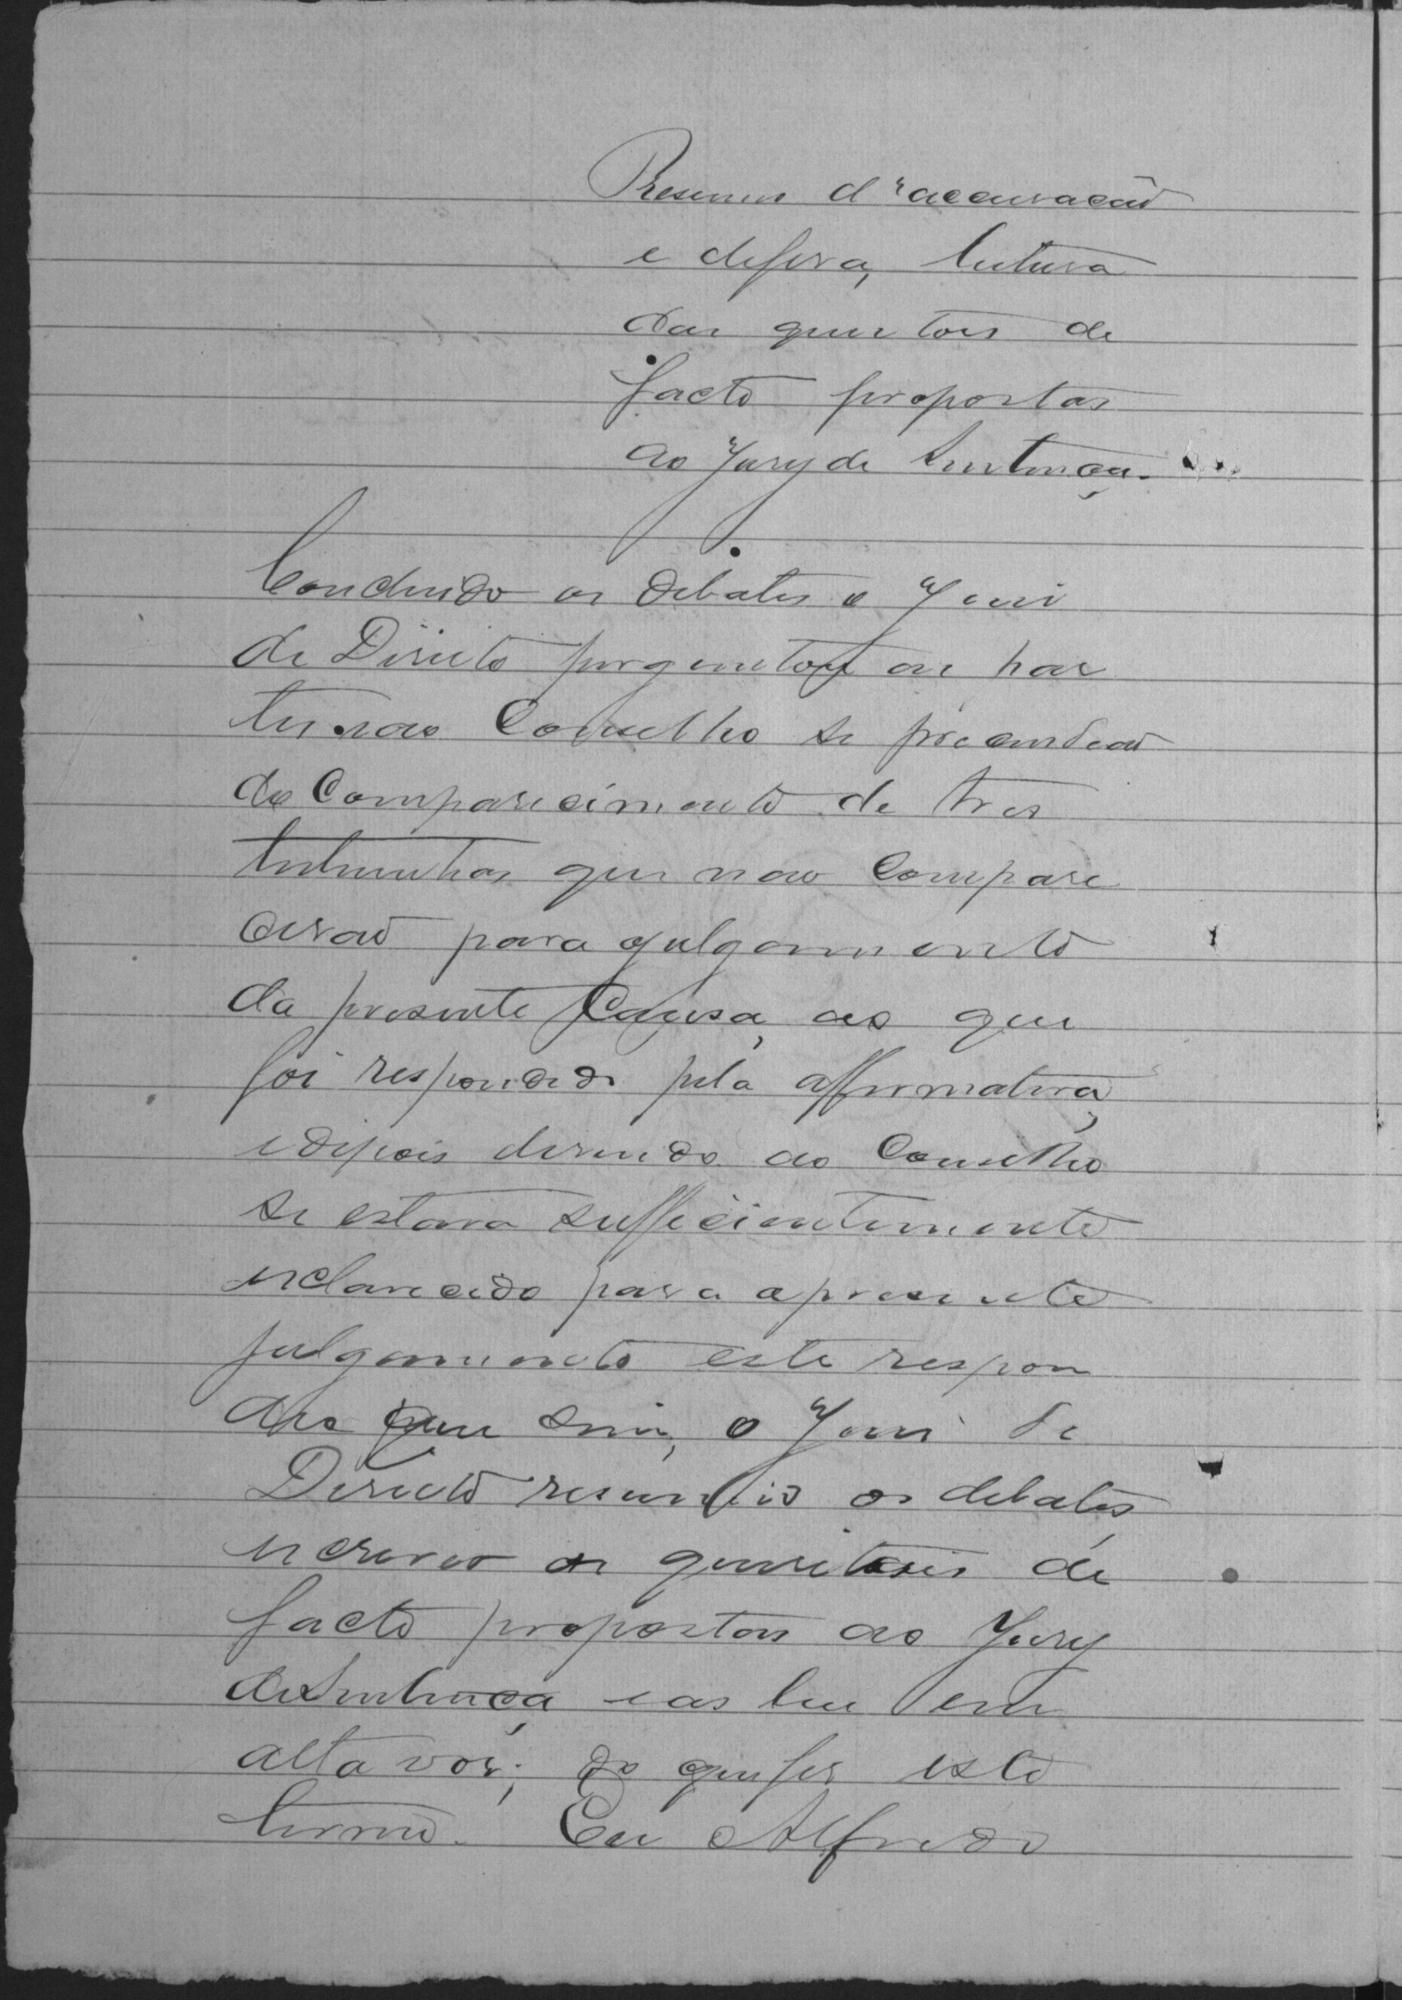 Resumo d'accusação
e defesa, leitura
das questões de
facto propostas
ao Jury de Sentença.
Concluido os debates o Juiz
de Direito perguntou as Par
tes e ao Conselho se precindião
do comparecimento de tres
testemunhas que não compare
cerão para o julgamento
da presente Causa, ao que
foi respondido pela affirmativa,
e depois disendo ao Conselho
se estava sufficientemente
esclarecido para a presente
julgamento este respon
deo que sim, o Juiz de
Direito resumio os debates,
escreveo as questões de
facto propostas ao Jury
de Sentença e as leu em
alta vos; do que fis este
termo. Eu Alfredo